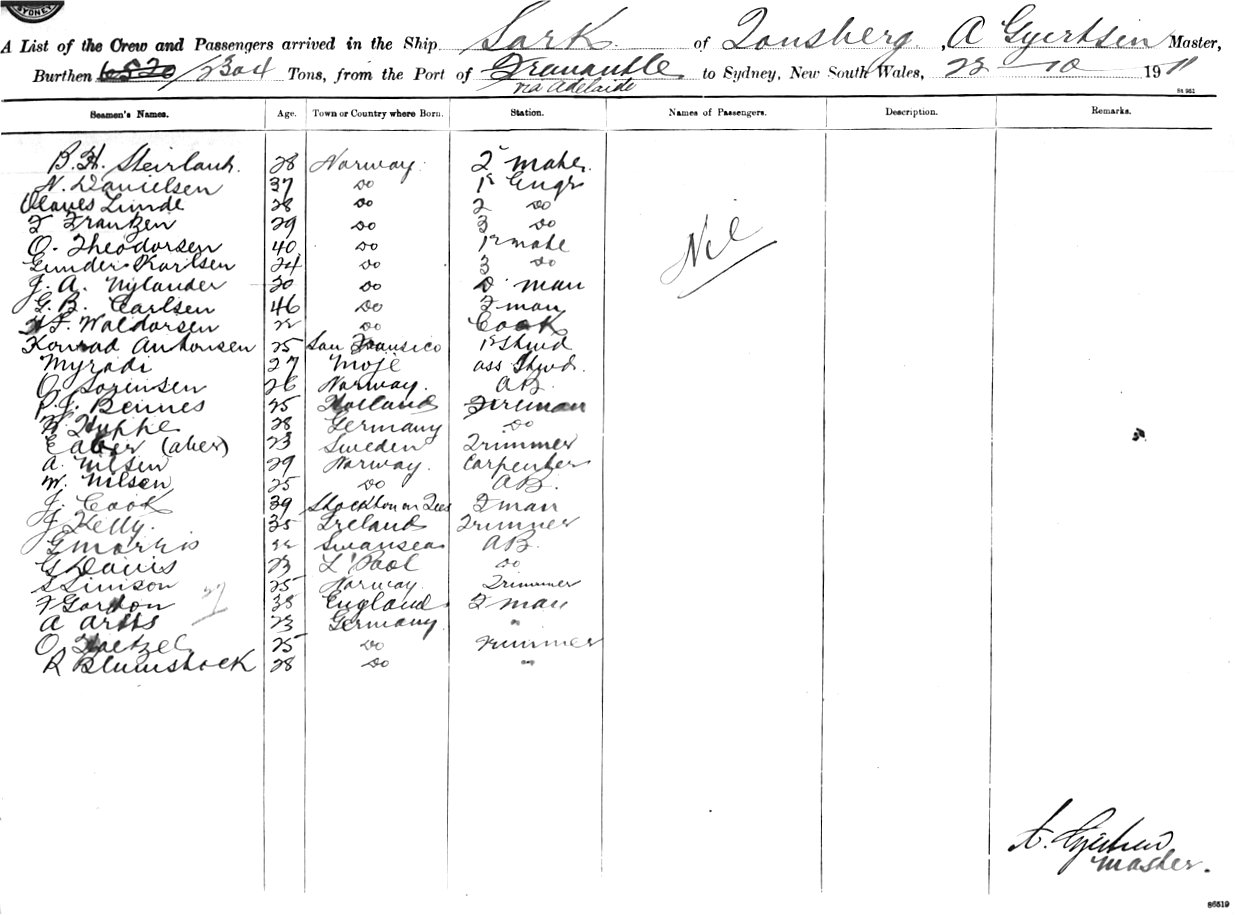 SYDNEY
A List of the Crew and Passengers arrived in the Ship Sark of Tonsberg, A Gjertsen Master,
Burthen 6520/2304 Tons, from the Port of Fremantle to Sydney, New South Wales, 23 10 1911
via Adelaide
St 951
Seamen's Names. Age. Town or Country where Born. Station. Names of Passengers. Description. Remarks.
B. H. 28 Norway. 2d mate.
N. Danielsen 37 do 1st Engr
Olaves Linde 28 do 2 do
F Frantzen 29 do 3 do
O. Theodorsen 40 do 1st mate
Gunder Karlsen 24 do 3 do
J. A. Nylander 30 do D. man
G. B. Carlsen 46 do F man
H F. Waldorsen 22 do Cook
Konrad Anthonsen 25 San Fransico 1st Stwd
Myradi 27 Moje ass Stwd.
O. Sorensen 26 Norway. AB.
P. J. Bennes 25 Holland Fireman
H Huppe 28 Germany do
E aber (aber) 23 Sweden Trimmer
A. Nilsen 29 Norway. Carpenter
W. Nilsen 25 do AB.
J. Cook 39 Stockton on Tees F man
J Kelly. 35 Ireland Trimmer
G Morris 22 Swansea AB.
G Davis 23 L'Pool do
S Simson 25 Norway. Trimmer
F Gordon 38 England F man
A Artts 23 Germany. "
O Hoetzel 25 do Trimmer
R Blumshock 28 do "
Nil
27
A. Gjertsen
Master.
86519